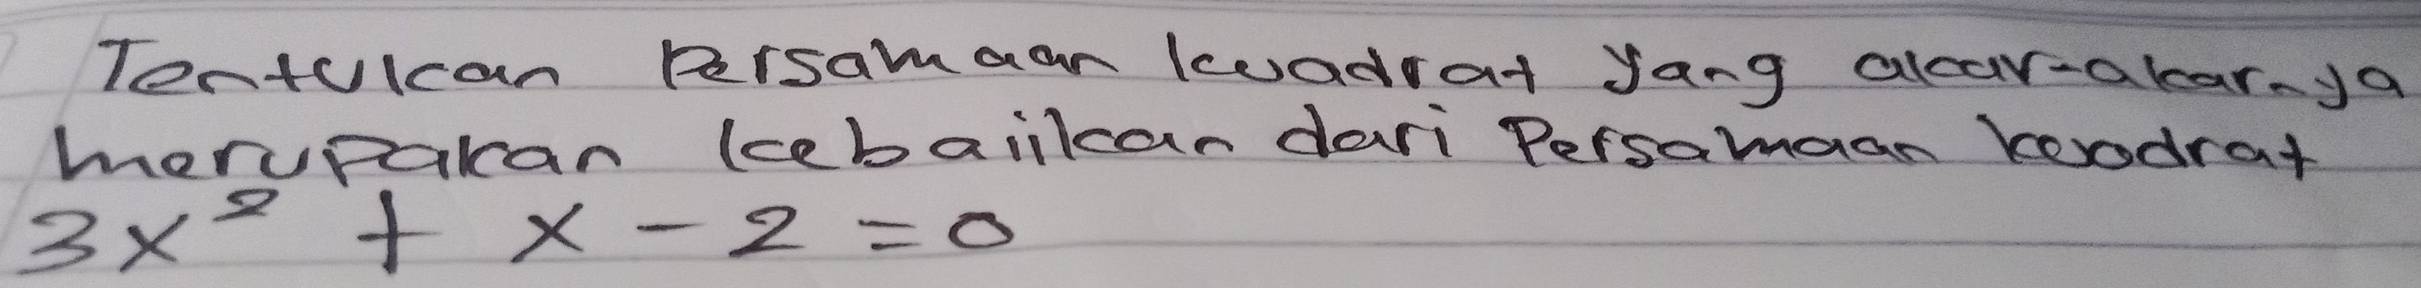 Tentukan Persamaan kuadrat yang akar-akarnya
merupakan kebaiikan dari Persamaan kuadrat
3x² + x - 2 = 0